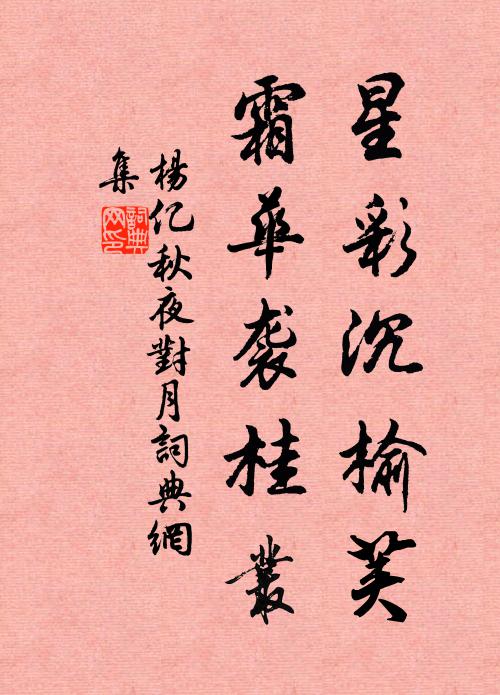 星彩沉榆荚
霜华袭桂叢
楊亿秋夜對月詞典網
集
詞典
网印